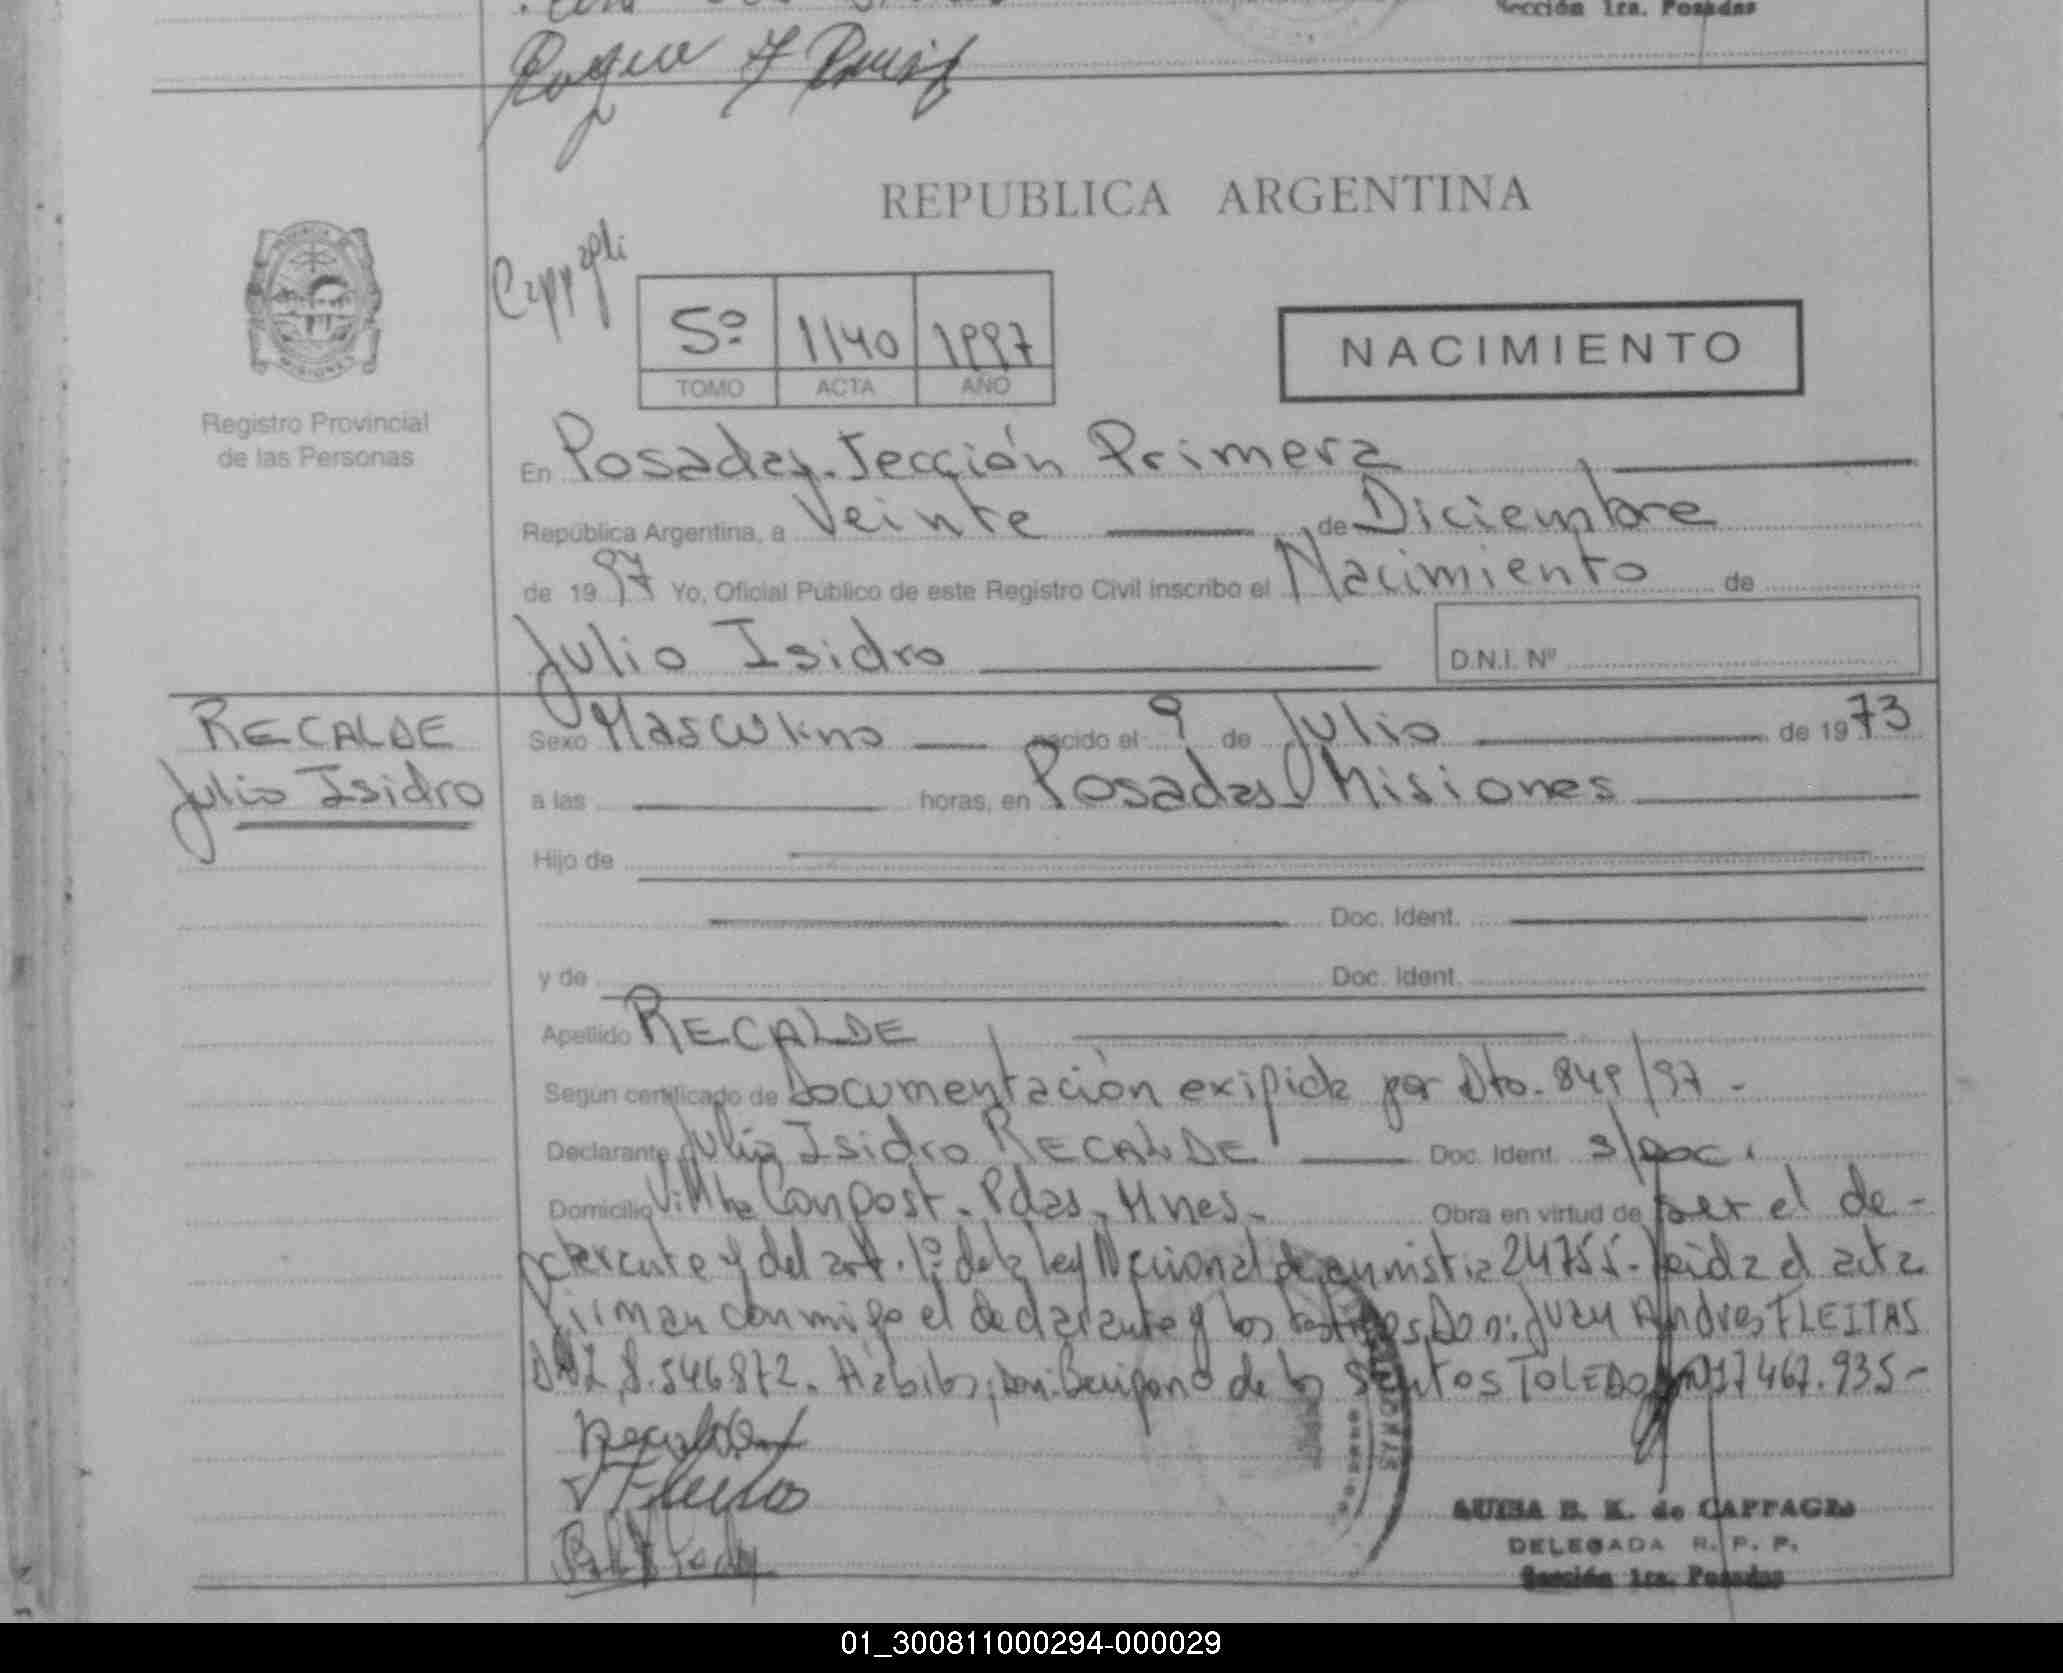 Sección 1ra. Posadas
REPUBLICA ARGENTINA
5º 1140 1997
TOMO ACTA AÑO
NACIMIENTO
Registro Provincial
de las Personas
En Posadas. Sección Primera
República Argentina, a Veinte de Diciembre
de 1997 Yo, Oficial Público de este Registro Civil inscribo el Nacimiento de
Julio Isidro D.N.I. Nº
RECALDE
Julio Isidro
Sexo Masculino nacido el 9 de Julio de 1973
a las horas, en Posadas Misiones
Hijo de
Doc. Ident.
y de Doc. Ident.
Apellido RECALDE
Según certificado de Documentación exigida por Dto. 849/97 -
Declarante Julio Isidro RECALDE Doc. Ident. s/doc.
Domicilio Pdas. Mnes. Obra en virtud de ser el de-
y del art. 1º de la ley Nacional de amnistia 24755. Leida el acta
firman conmigo el declarante y los testigos Don: Juan Andres FLEITAS
DNI 8.546872. Habiles, Don: de los Santos TOLEDO 17467.935-
de CAPPAGLI
DELEGADA R. P. P.
Sección 1ra. Posadas
01_300811000294-000029